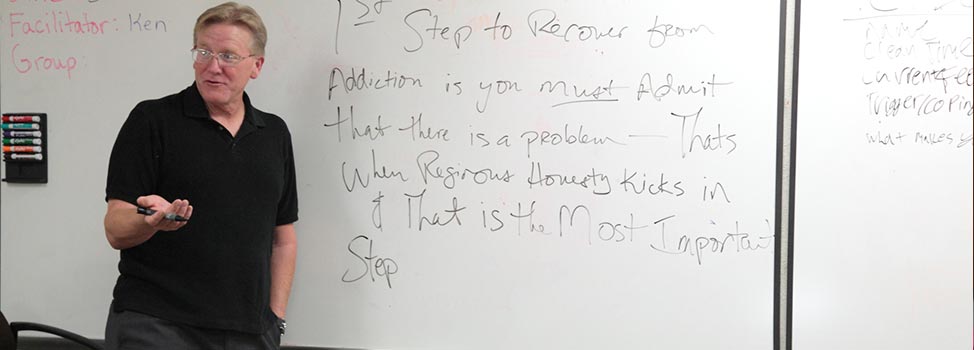 Facilitator: Ken
Group:
1st
Step to Recover from
Addiction is you must Admit
that there is a problem — Thats
when Regirous Honesty Kicks in
& That is the Most Important
Step
name
Clean Time
Current
Trigger/coping
what makes